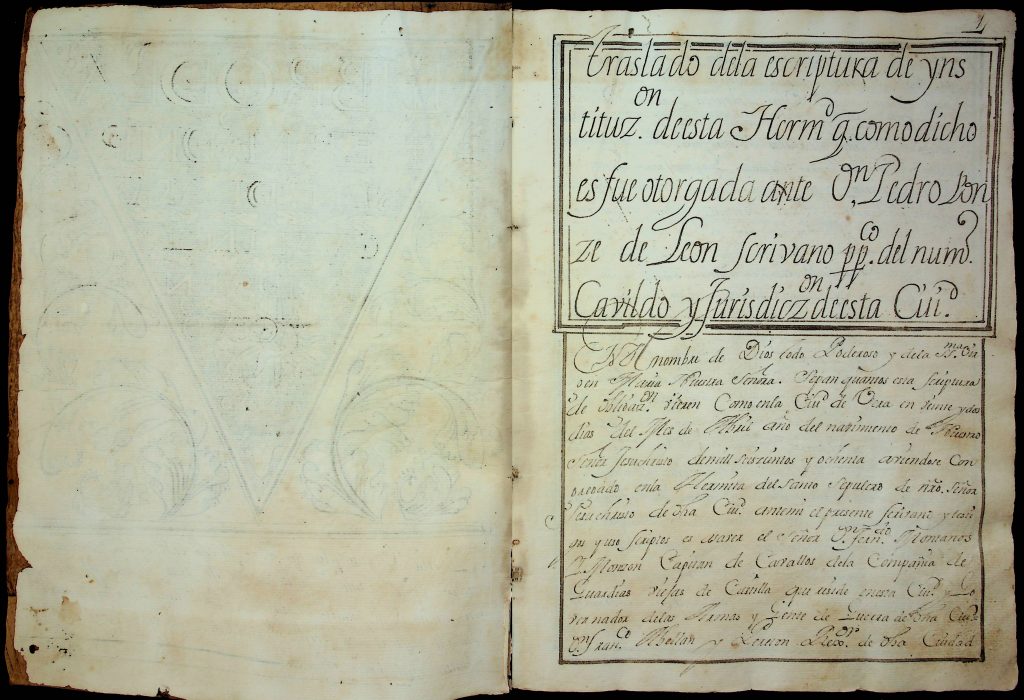 1
traslado dela escriptura de yns
tituz.on deesta Herm.d q. comodicho
es fue otorgada ante D.n Pedro Pon
ze de Leon scrivano pp.co del num.o
Cavildo y Jurisdicz.on deesta Ciu.d
En El nombre de Dios todo Poderoso y dela S.ma Vir
Jen Maria Nuestra Señra. Sepan quantos esta scriptura
de vieren Como enla Ciu.d de Vera en veinte y dos
dias del Mes de Abril año del nasimiento de Nuestro
Señor Jesuchristo demill seiscientos y ochenta aviendose Con
gregado enla Hermita del Santo Sepulcro de nro. Señor
Jesuchristo de dha Ciu.d antemi el presente scrivano y testi
gos y uso scriptos es asaver el Señor D.n Fern.do Montanos
I. Monson Capitan de Cavallos dela Compañia de
Guardias viejas de Castilla que reside enesta Ciu.d y Go
vernador delas Armas y Jente de Guerra de dha Ciu.d
D.n Fran.co Abellan y de dha Ciudad